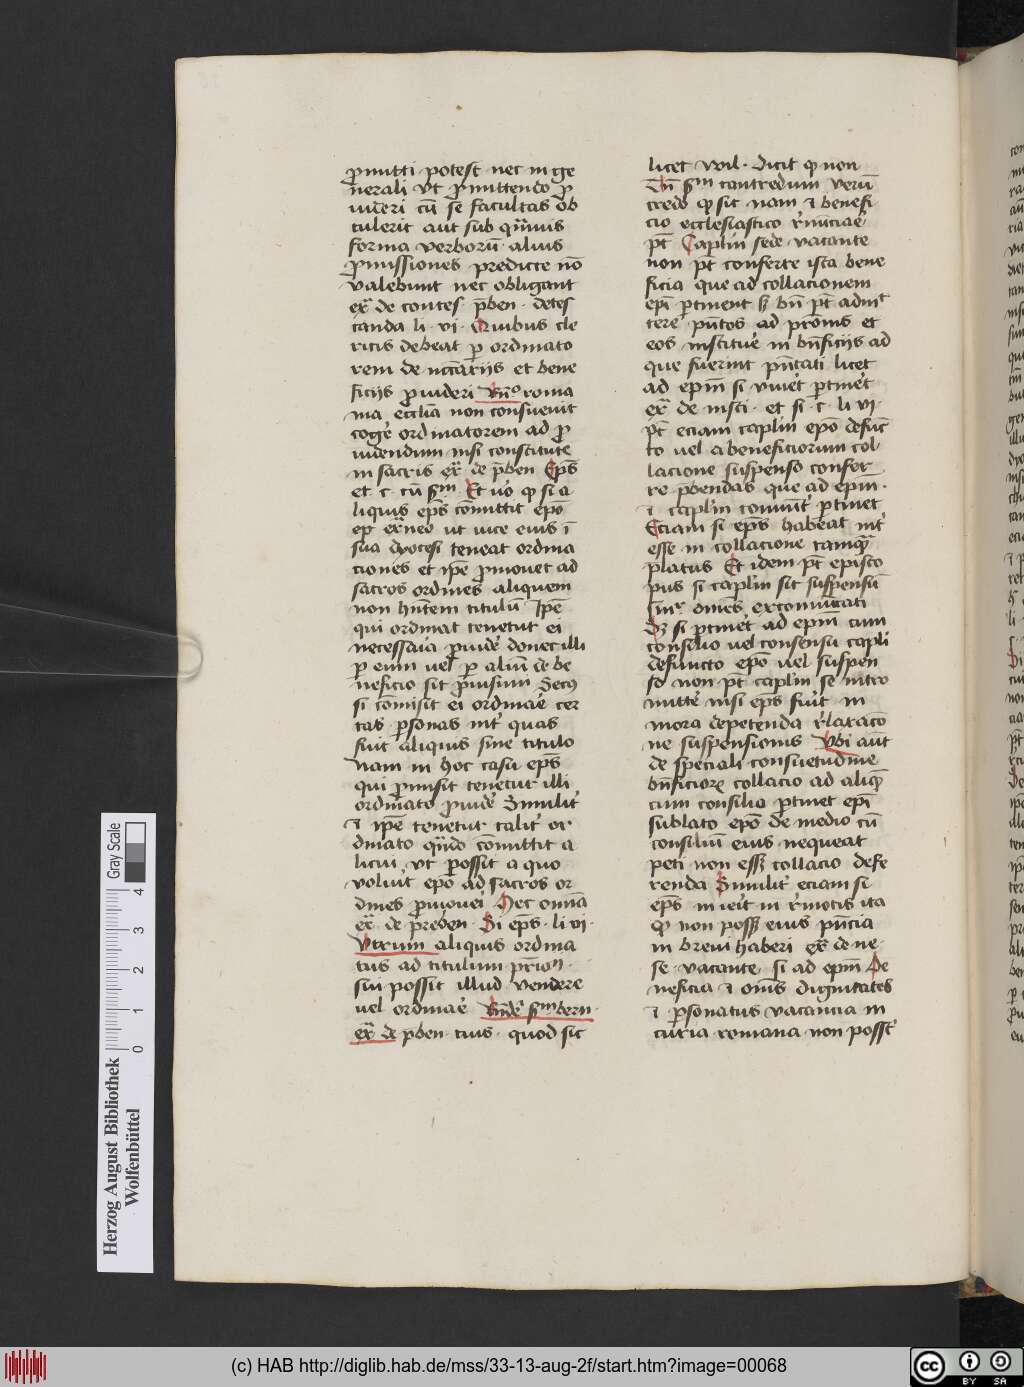 ꝓmitti potest̄ nec in ge
nerali vt ꝓmittendo ꝓ
uideri cū se facultas ob
tulerit aut sub qͥmuis
forma verborū· alius
ꝓmissiones predicte nō
valebunt nec obligant
ex̄ de conces· p̄ben· detes
tanda li· vi· Quibus cle
ricis debeat ꝑ ordinato
rem de ncc̄ariis et bene
ficijs ꝓuideri Vn̄º roma
na ecclīa non consueuit
coge᷑ ordinatorem ad ꝓ
uidendum nisi constitute
in sacris ex̄ de p̄ben Ep̄s
et c· cū sͫm Et uo᷑ ꝙ si a
liquis ep̄s cōmittit ep̄o
ep̄ ex̄neo ut uice eius ī
sua dyocesi teneat ordina
ciones et ip̄e ꝓmouet ad
sacros ordines aliquem
non hn̄tem titulū Ip̄e
qui ordinat tenetur ei
necessaīa ꝓuide᷑ donec illi
ꝑ eum uel ꝑ aliū de be
neficio sit ꝓuisum Secꝰ
si cōmisit ei ordinae᷑ cer
tas ꝑsonas int᷑ quas
fiut᷑ aliquis sine titulo
Nam in hoc casu ep̄s
qui ꝓmisit tenetur illi
ordinato ꝓuide᷑ Similit᷑
⁊ ip̄e tenetur talit᷑ or
dinato qn̄do cōmittit a
licui vt possit a quo
voluit᷑ ep̄o ad sacros or
dines ꝓmoueri᷑ Hec omīa
ex̄ de preben· Si ep̄s· li vi·
Utrum aliquis ordina
tus ad titulum pr̄iōn
sui possit illud vendere
uel ordinae᷑ Vn̄de᷑ sͫm bern·
ex̄ de p̄ben· tuis· quod sic
licet Will· dicit ꝙ non
Dn̄ sͫm tancredum verū
credo ꝙ sit nam ⁊ benefi
cio ecclesiastico r᷑nūciae᷑
pt̄ Caplīn sede vacante
non pt̄ conferre ista bene
ficia que ad collacionem
ep̄i ꝑtinent sꝫ bn̄ pt̄ admt᷑
tere pn̄tos ad pr̄onis et
eos instituē in bn̄ficijs ad
que fuerint pn̄tati licet
ad epīm si viuet᷑ ꝑtinet᷑
ex̄ de insti· et si· c· li vi·
pt̄ eciam caplīn ep̄o defūc
to uel a beneficiorum col
lacione suspenso confer
re p̄bendas que ad epīm·
⁊ caplīn comunit᷑ ꝑtinet
Eciam si ep̄s habeat int᷑
esse in collacione tamqͣ
p̄latus Et idem pt̄ episco
pus si caplīn sit suspensū
sim̄r omes excommunicati
Sꝫ si ꝑtinet᷑ ad epīm cum
consilio uel consensu capli
defuncto ep̄o uel suspen
so non pt̄ caplīn se intro
mitte᷑ nisi ep̄s fiut᷑ in
mora depetenda r᷑laxacō
ne suspensionis Vbi aūt
de speciali consuetudīne
bn̄ficiorꝝ collacio ad aliqͣ
cum consilio ꝑtinet ep̄i
sublato ep̄o de medio cū
consiliū eius nequeat
peti non essꝫ collacio defe
renda Similit᷑ eciam si
ep̄s in ieit᷑ in r᷑motis ita
ꝙ non possꝫ eius pn̄cia
in breui haberi ex̄ de ne·
se· vacante· si ad epīm De
neficia ⁊ omīs dignitates
⁊ ꝑsonatus vacancia in
curia romana non posst᷑
Herzog August Bibliothek
Wolfenbüttel
0 1 2 3 4
Gray Scale
(c) HAB http://diglib.hab.de/mss/33-13-aug-2f/start.htm?image=00068
cc BY SA